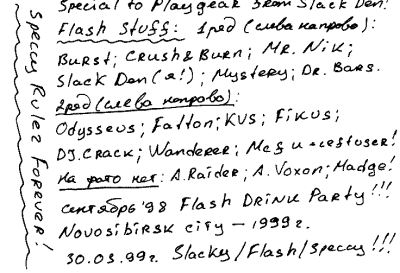 Special to Playgear from Slack Den!
Flash Stuff: 1ряд (слева направо):
Burst; Crush& Burn; Mr. Nik;
Slack Den (я!); Mystery; Dr. Bars.
2ряд (слева направо):
Odysseus; Fatton; KVS; Fikus;
DJ.Crack; Wanderer; Meg и
На фото нет: A.Raider; A.Voxon; Madge!
сентябрь '98 Flash Drink Party!!!
Novosibirsk city - 1999г.
30.03.99г. Slacky/Flash/Speccy!!!
Speccy Rulez Forever!